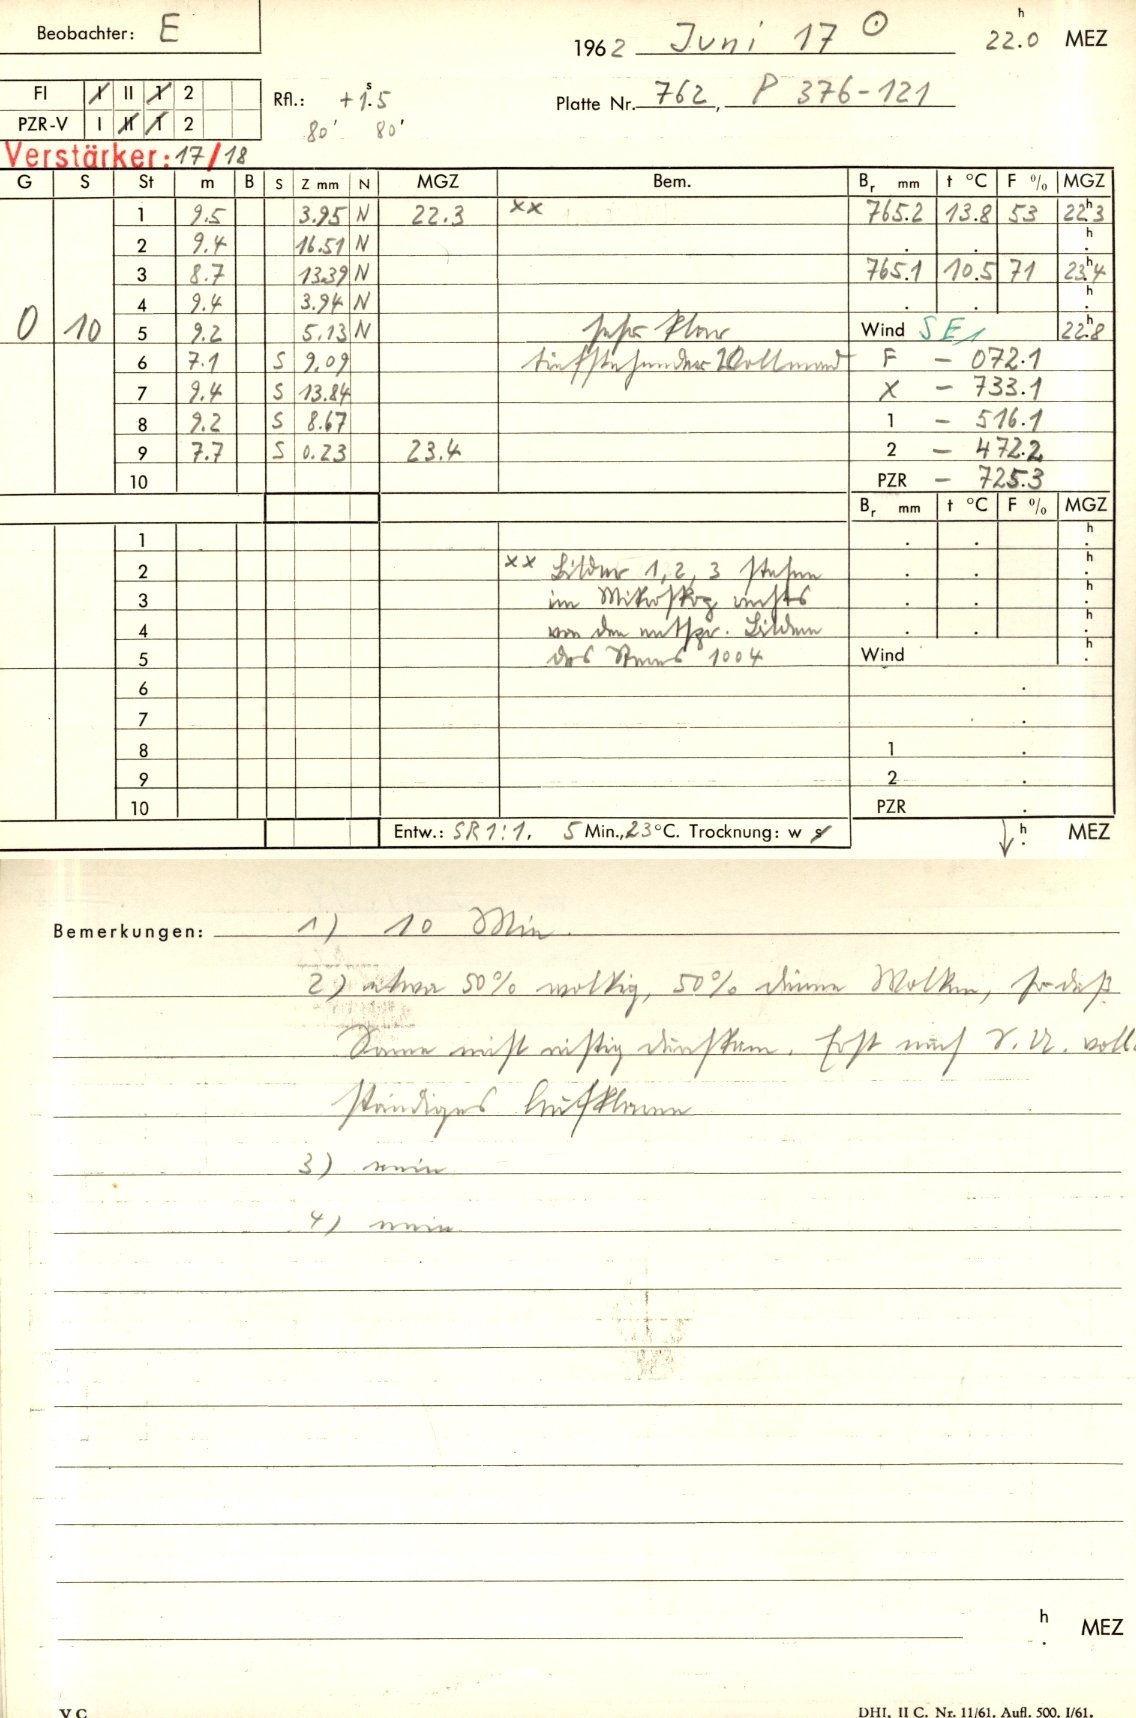 Beobachter: E
1962 Juni 17 ☉ 22.0 h MEZ
FI I II 1 2
PZR-V I II 1 2
Rfl.: +1.5 s
80' 80'
Platte Nr. 762, P 376-121
Verstärker: 17/18
G S St m B S Z mm N MGZ Bem. Br mm t °C F % MGZ
1 9.5 3.95 N 22.3 ×× 765.2 13.8 53 22.3 h
2 9.4 16.51 N . . h .
3 8.7 13.39 N 765.1 10.5 71 23.4 h
4 9.4 3.94 N . . h .
0 10 5 9.2 5.13 N sehr klar Wind SE1 22.8 h
6 7.1 S 9.09 tiefstehender Vollmond F – 072.1
7 9.4 S 13.84 X – 733.1
8 9.2 S 8.67 1 – 516.1
9 7.7 S 0.23 23.4 2 – 472.2
10 PZR – 725.3
Br mm t °C F % MGZ
1 . . h .
2 ×× Bilder 1, 2, 3 stehen . . h .
3 im Mikroskop rechts . . h .
4 von den entspr. Bildern . . h .
5 des Sterns 1004 Wind h .
6 .
7 .
8 1 .
9 2 .
10 PZR .
Entw.: SR 1:1, 5 Min., 23 °C. Trocknung: w s h . MEZ
Bemerkungen: 1) 10 Min.
2) etwa 50% wolkig, 50% dünne Wolken, so daß
Sonne nicht richtig durchkam. Erst nach S. U. voll-
ständiges Aufklaren
3) nein
4) nein
h . MEZ
V C DHI, II C. Nr. 11/61. Aufl. 500. I/61.